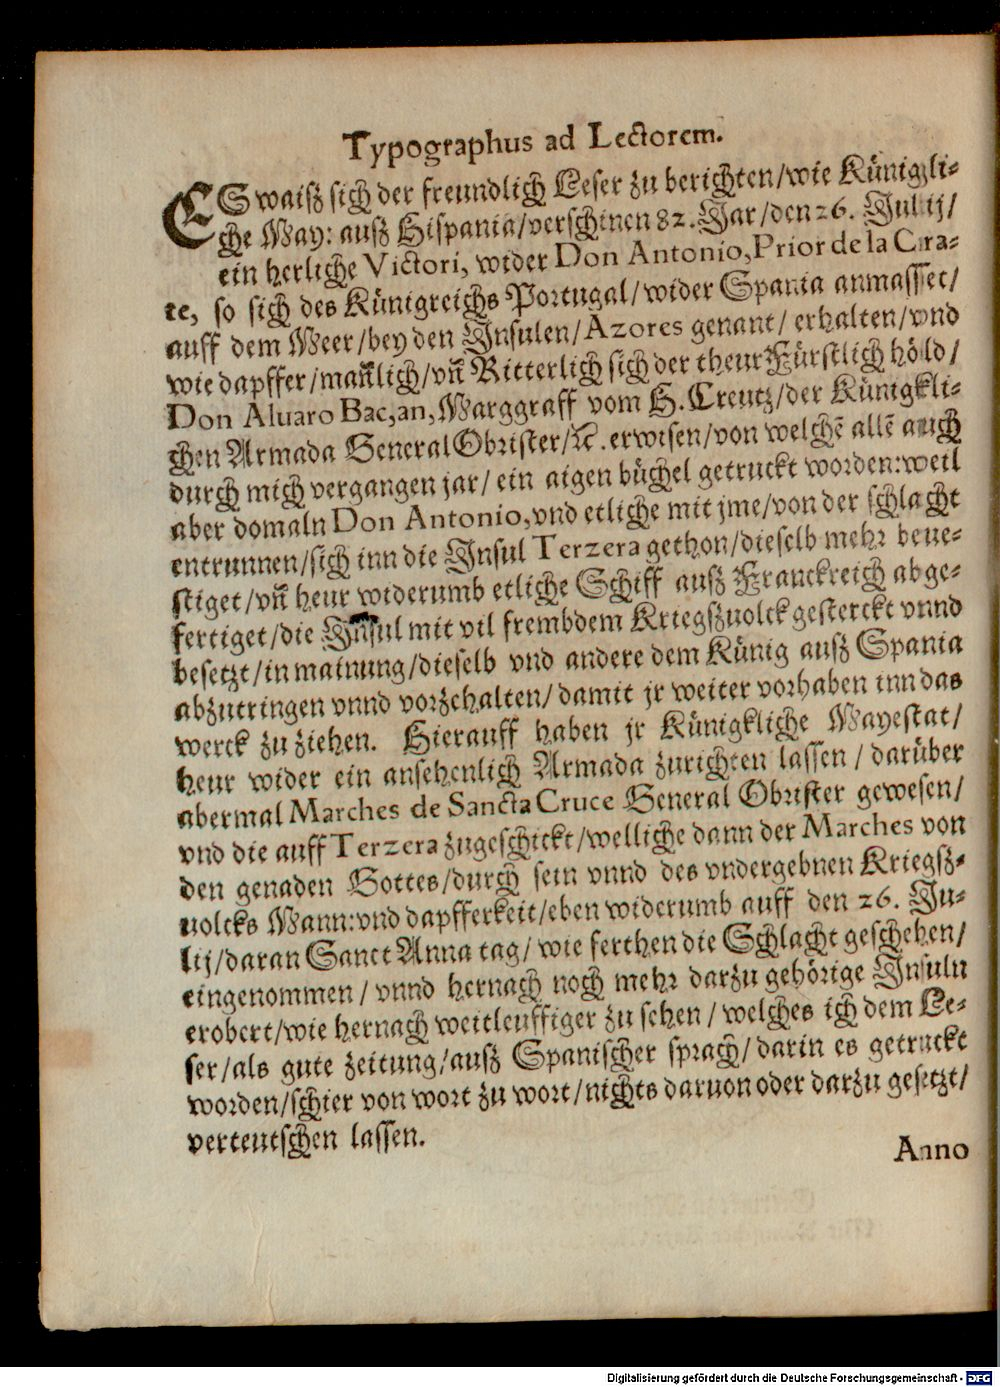 Typographus ad Lectorem.
ES waisz sich der freundlich Leser zu berichten/wie Künigli-
che May: ausz Hispania/verschinen 82. Jar/den 26. Julij/
ein herliche Victori, wider Don Antonio, Prior de la Cra-
te, so sich des Künigreichs Portugal/wider Spania anmasset/
auff dem Meer/bey den Insulen/Azores genant/ erhalten/vnd
wie dapffer/mañlich/vñ Ritterlich sich der theur Fürstlich höld/
Don Aluaro Baç,an, Marggraff vom H. Creutz/der Künigkli-
chen Armada General Obrister/ꝛc. erwisen/von welchẽ allẽ auch
durch mich vergangen jar/ ein aigen büchel getruckt worden: weil
aber domaln Don Antonio, vnd etliche mit jme/von der schlacht
entrunnen/sich inn die Insul Terzera gethon/dieselb mehr beue-
stiget/vñ heur widerumb etliche Schiff ausz Franckreich abge-
fertiget/die Insul mit vil frembdem Kriegszuolck gesterckt vnnd
besetzt/in mainung/dieselb vnd andere dem Künig ausz Spania
abzutringen vnnd vorzehalten/ damit jr weiter vorhaben inn das
werck zu ziehen. Hierauff haben jr Künigkliche Mayestat/
heur wider ein ansehenlich Armada zurichten lassen / darüber
abermal Marches de Sancta Cruce General Obrister gewesen/
vnd die auff Terzera zugeschickt/welliche dann der Marches von
den genaden Gottes/durch sein vnnd des vndergebnen Kriegsz-
uolcks Mann: vnd dapfferkeit/eben widerumb auff den 26. Ju-
lij/daran Sanct Anna tag/ wie ferthen die Schlacht geschehen/
eingenommen / vnnd hernach noch mehr darzu gehörige Insuln
erobert/wie hernach weitleuffiger zu sehen / welches ich dem Le-
ser/als gute zeitung/ausz Spanischer sprach/ darin es getruckt
worden/schier von wort zu wort/nichts daruon oder darzu gesetzt/
verteutschen lassen.
Anno
Digitalisierung gefördert durch die Deutsche Forschungsgemeinschaft - DFG